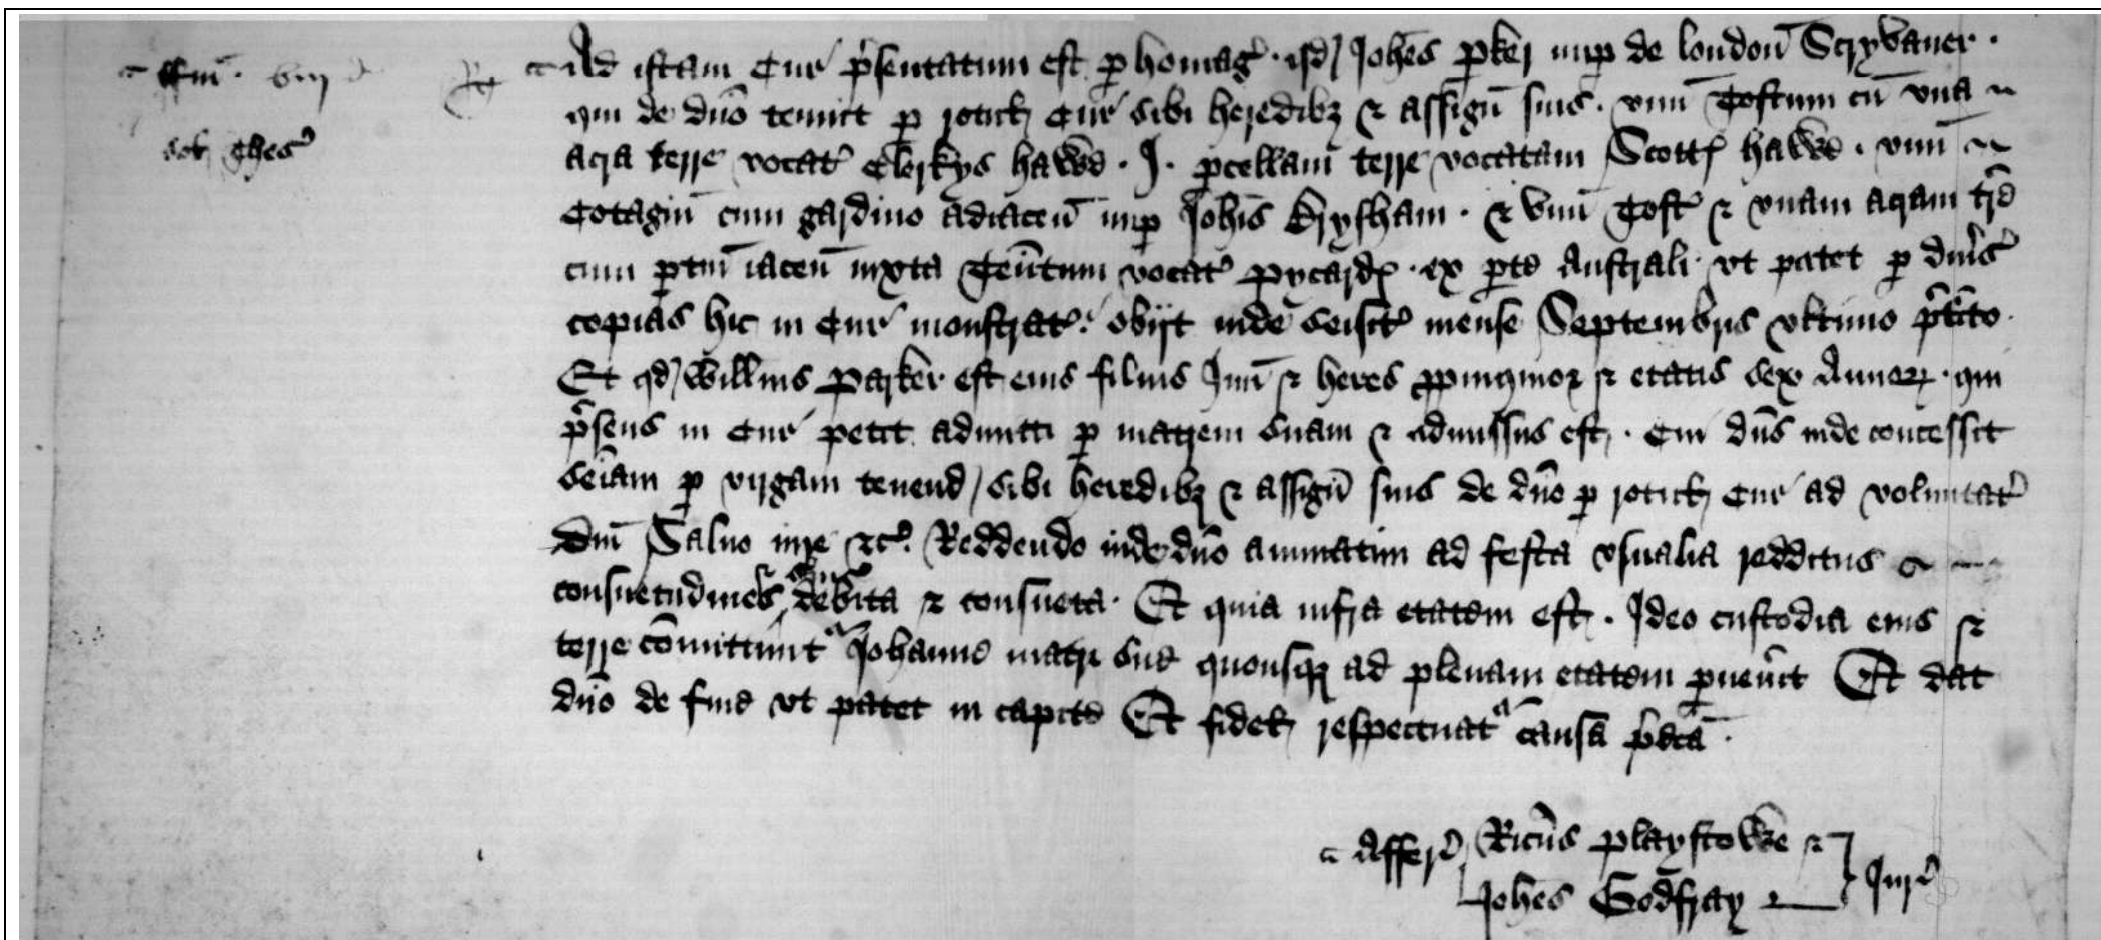 ffin̄ viij d
Ad istam Cur̛ p̱sentatum est p̱ homag̛ . qd̛ Joh̄es p̱ker nup̱ de london̄ Scryvaner .
qui de dn̄o tenuit p̱ rotul̛ Cur̛ sibi heredibȝ & assign̄ suis . vnū Toftum cū vna
sol̛ Thes̛
acra terre vocat̛ Clerkys hawe . J . p̱cellam terre vocatam Scott̛ hawe . vnū
Cotagiū cum gardino adiacen̄ nup̱ Joh̄is Krysham . & vnū Toft̛ & vnam acram tr̄e
cum p̱tin̄ iacen̄ iuxta Ten̄tum vocat̛ pycard̛ . ex p̱te Australi . vt patet p̱ diưs̛
copias hic in Cur̛ monstrat̛ . obijt inde seisit̛ mense Septembris vltimo p̱t̄ito .
Et qd̛ Will̄ms Parker est eius filius Jun̄ & heres p̱pinquior & etatis sex Annorꝝ . qui
p̱sens in Cur̛ petit admitti p̱ matrem suam & admissus est . Cui dn̄s inde concessit
sēiam p̱ virgam tenend̛ sibi heredibȝ & assign̄ suis de dn̄o p̱ rotul̛ Cur̛ ad voluntat̛
Dn̄i Saluo iure &c̛ . Reddendo inde dn̄o annuatim ad festa vsualia redditus
consuetudines debita & consueta . Et quia infra etatem est . Ideo custodia eius &
terre cōmittunt̛ Johanne matri sue quousqȝ ad plenam etatem p̱uen̛it Et dat
dn̄o de fine vt patet in capite Et fidel̛ respectuat̛ causa p̱dc̄a .
Affer̛ Ric̄us playstowe &
Joh̄es Godfray Jur̛